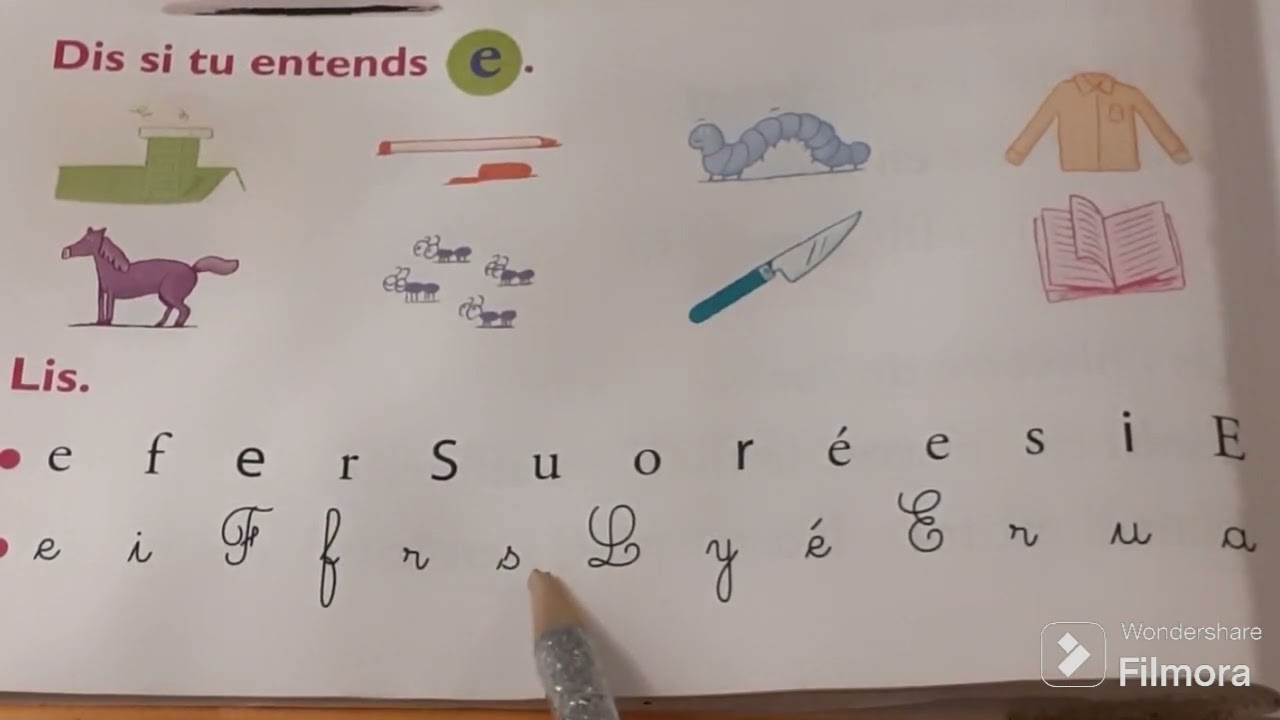 Dis si tu entends e.
Lis.
e f e r S u o r é e s i E
e i F f r s L y é E r u a
Wondershare
Filmora